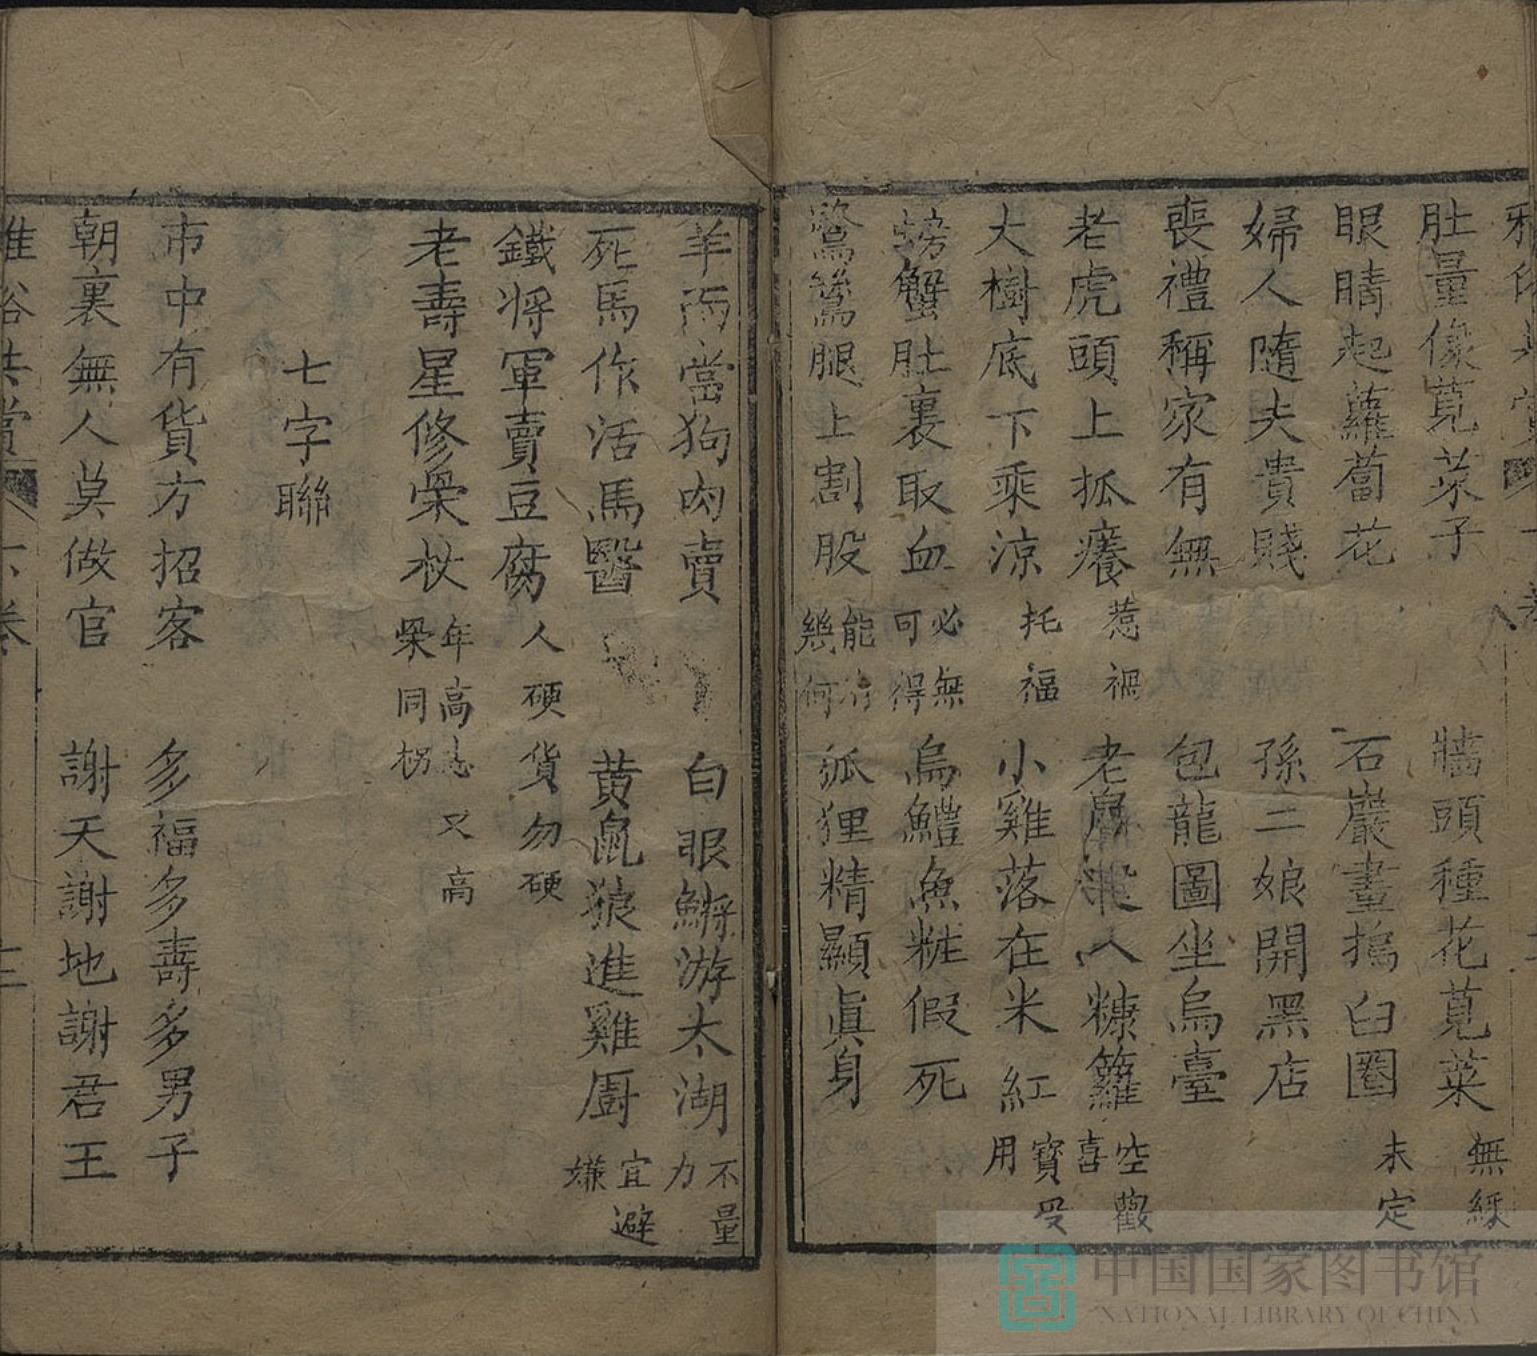 肚量像莧菜子 牆頭種花莧菜 無綵
眼睛起蘿蔔花 石巖畫搗臼圈 未定
婦人隨夫貴賤 孫二娘開黑店
喪禮稱家有無 包龍圖坐烏臺
老虎頭上抓癢 惹禍 老鼠入糠籮 空歡喜
大樹底下乘涼 托福 小雞落在米 紅 寶受用
螃蟹肚裏取血 必無可得 烏鱧魚粧假死
鷺鷥腿上割股 能有幾何 狐狸精顯眞身
羊肉當狗肉賣 白眼鰣游太湖 不量力
死馬作活馬醫 黃鼠狼進雞厨 宜避嫌
鐵將軍賣豆腐 人硬貨勿硬
老壽星修枴杖 年高志又高 同枴
七字聯
市中有貨方招客 多福多壽多男子
朝裏無人莫做官 謝天謝地謝君王
雅俗共賞 下卷 十三
中国国家图书馆
NATIONAL LIBRARY OF CHINA